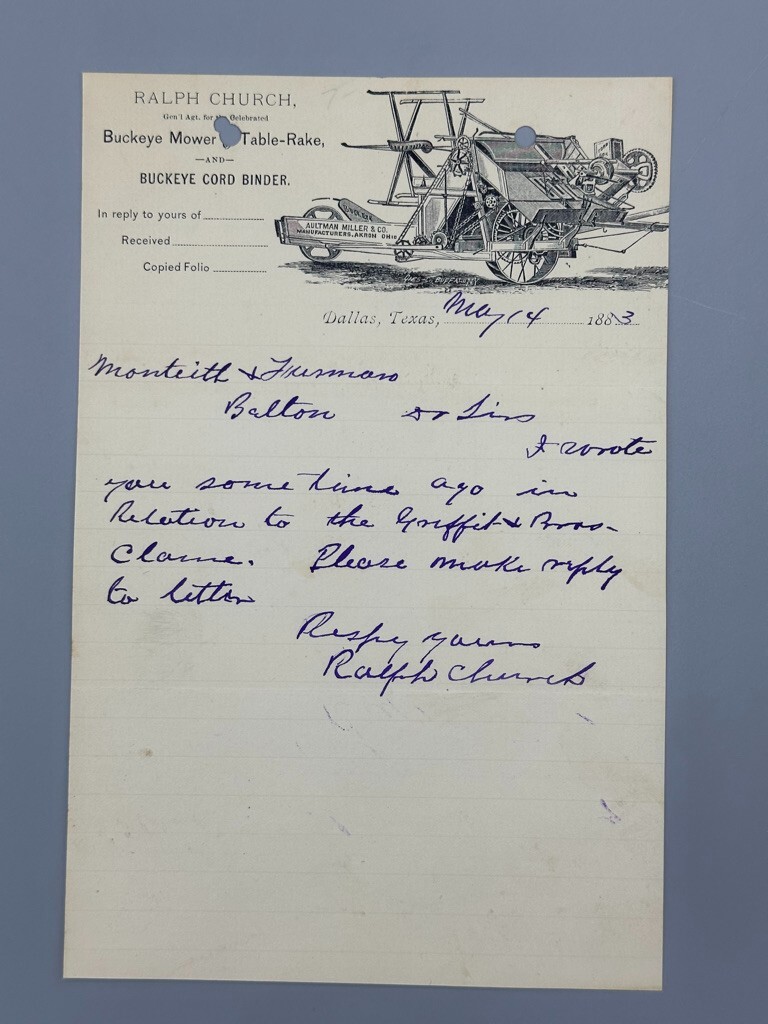 RALPH CHURCH,
Gen'l Agt. for the Celebrated
Buckeye Mower Table-Rake,
—AND—
BUCKEYE CORD BINDER.
In reply to yours of
Received
Copied Folio
BUCKEYE
AULTMAN MILLER & CO.
MANUFACTURERS, AKRON OHIO
Dallas, Texas, May 14 1883
Monteith & Furman
Belton Dr Sirs
I wrote
you some time ago in
Relation to the Griffit & Bros
Clame. Please make reply
to letter
Respy yours
Ralph Church